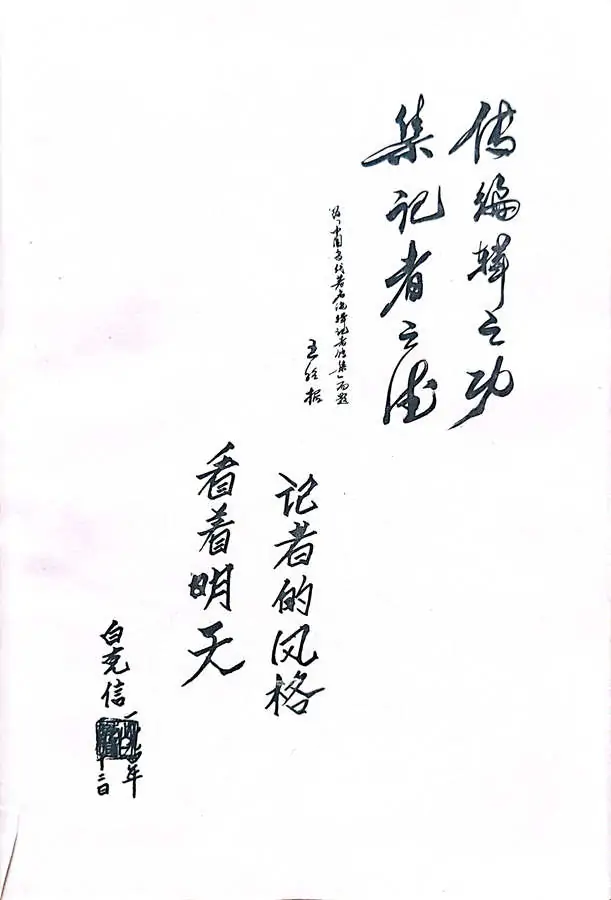 传编辑之功
集记者之德
为中国当代著名编辑记者传集而题
王
记者的风格
看着明天
白克信
一九 年
二日